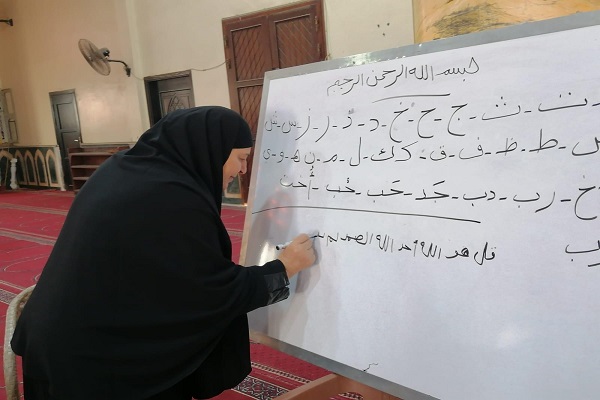 بسم الله الرحمن الرحيم
ت - ث - ج - ح - خ - د - ذ - ر - ز - س - ش
ط - ظ - ف - ق - ك - ل - م - ن - ه - و - ي
خ - رب - دب - جَد - حَب - حُب - أُخت
قل هو الله أحد الله الصمد لم